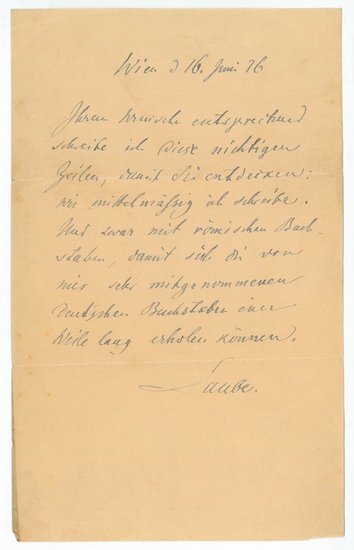 Wien d 16. Juni 76
Ihrem Wunsche entsprechend
schreibe ich diese nichtigen
Zeilen, damit Sie entdecken:
wie mittelmässig ich schreibe.
Und zwar mit römischen Buch-
staben, damit sich die von
mir sehr mitgenommenen
deutschen Buchstaben eine
Weile lang erholen können.
Laube.